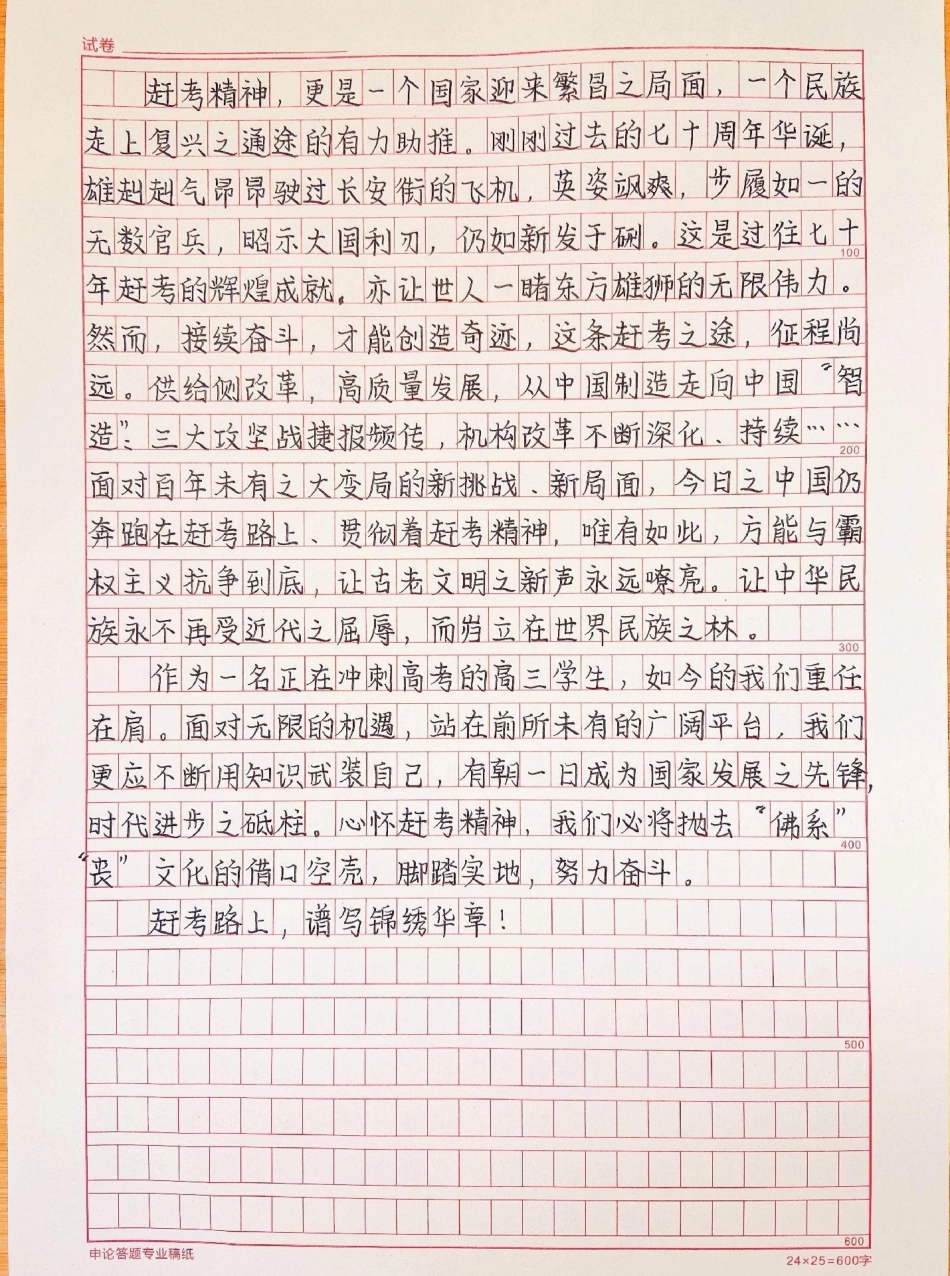 试卷
赶考精神，更是一个国家迎来繁昌之局面，一个民族
走上复兴之通途的有力助推。刚刚过去的七十周年华诞，
雄赳赳气昂昂驶过长安街的飞机，英姿飒爽，步履如一的
无数官兵，昭示大国利刃，仍如新发于硎。这是过往七十
100
年赶考的辉煌成就。亦让世人一睹东方雄狮的无限伟力。
然而，接续奋斗，才能创造奇迹，这条赶考之途，征程尚
远。供给侧改革，高质量发展，从中国制造走向中国“智
造”：三大攻坚战捷报频传，机构改革不断深化、持续……
200
面对百年未有之大变局的新挑战、新局面，今日之中国仍
奔跑在赶考路上、贯彻着赶考精神，唯有如此，方能与霸
权主义抗争到底，让古老文明之新声永远嘹亮。让中华民
族永不再受近代之屈辱，而岿立在世界民族之林。
300
作为一名正在冲刺高考的高三学生，如今的我们重任
在肩。面对无限的机遇，站在前所未有的广阔平台，我们
更应不断用知识武装自己，有朝一日成为国家发展之先锋，
时代进步之砥柱。心怀赶考精神，我们必将抛去“佛系”
400
“丧”文化的借口空壳，脚踏实地，努力奋斗。
赶考路上，谱写锦绣华章！
500
600
申论答题专业稿纸
24×25=600字